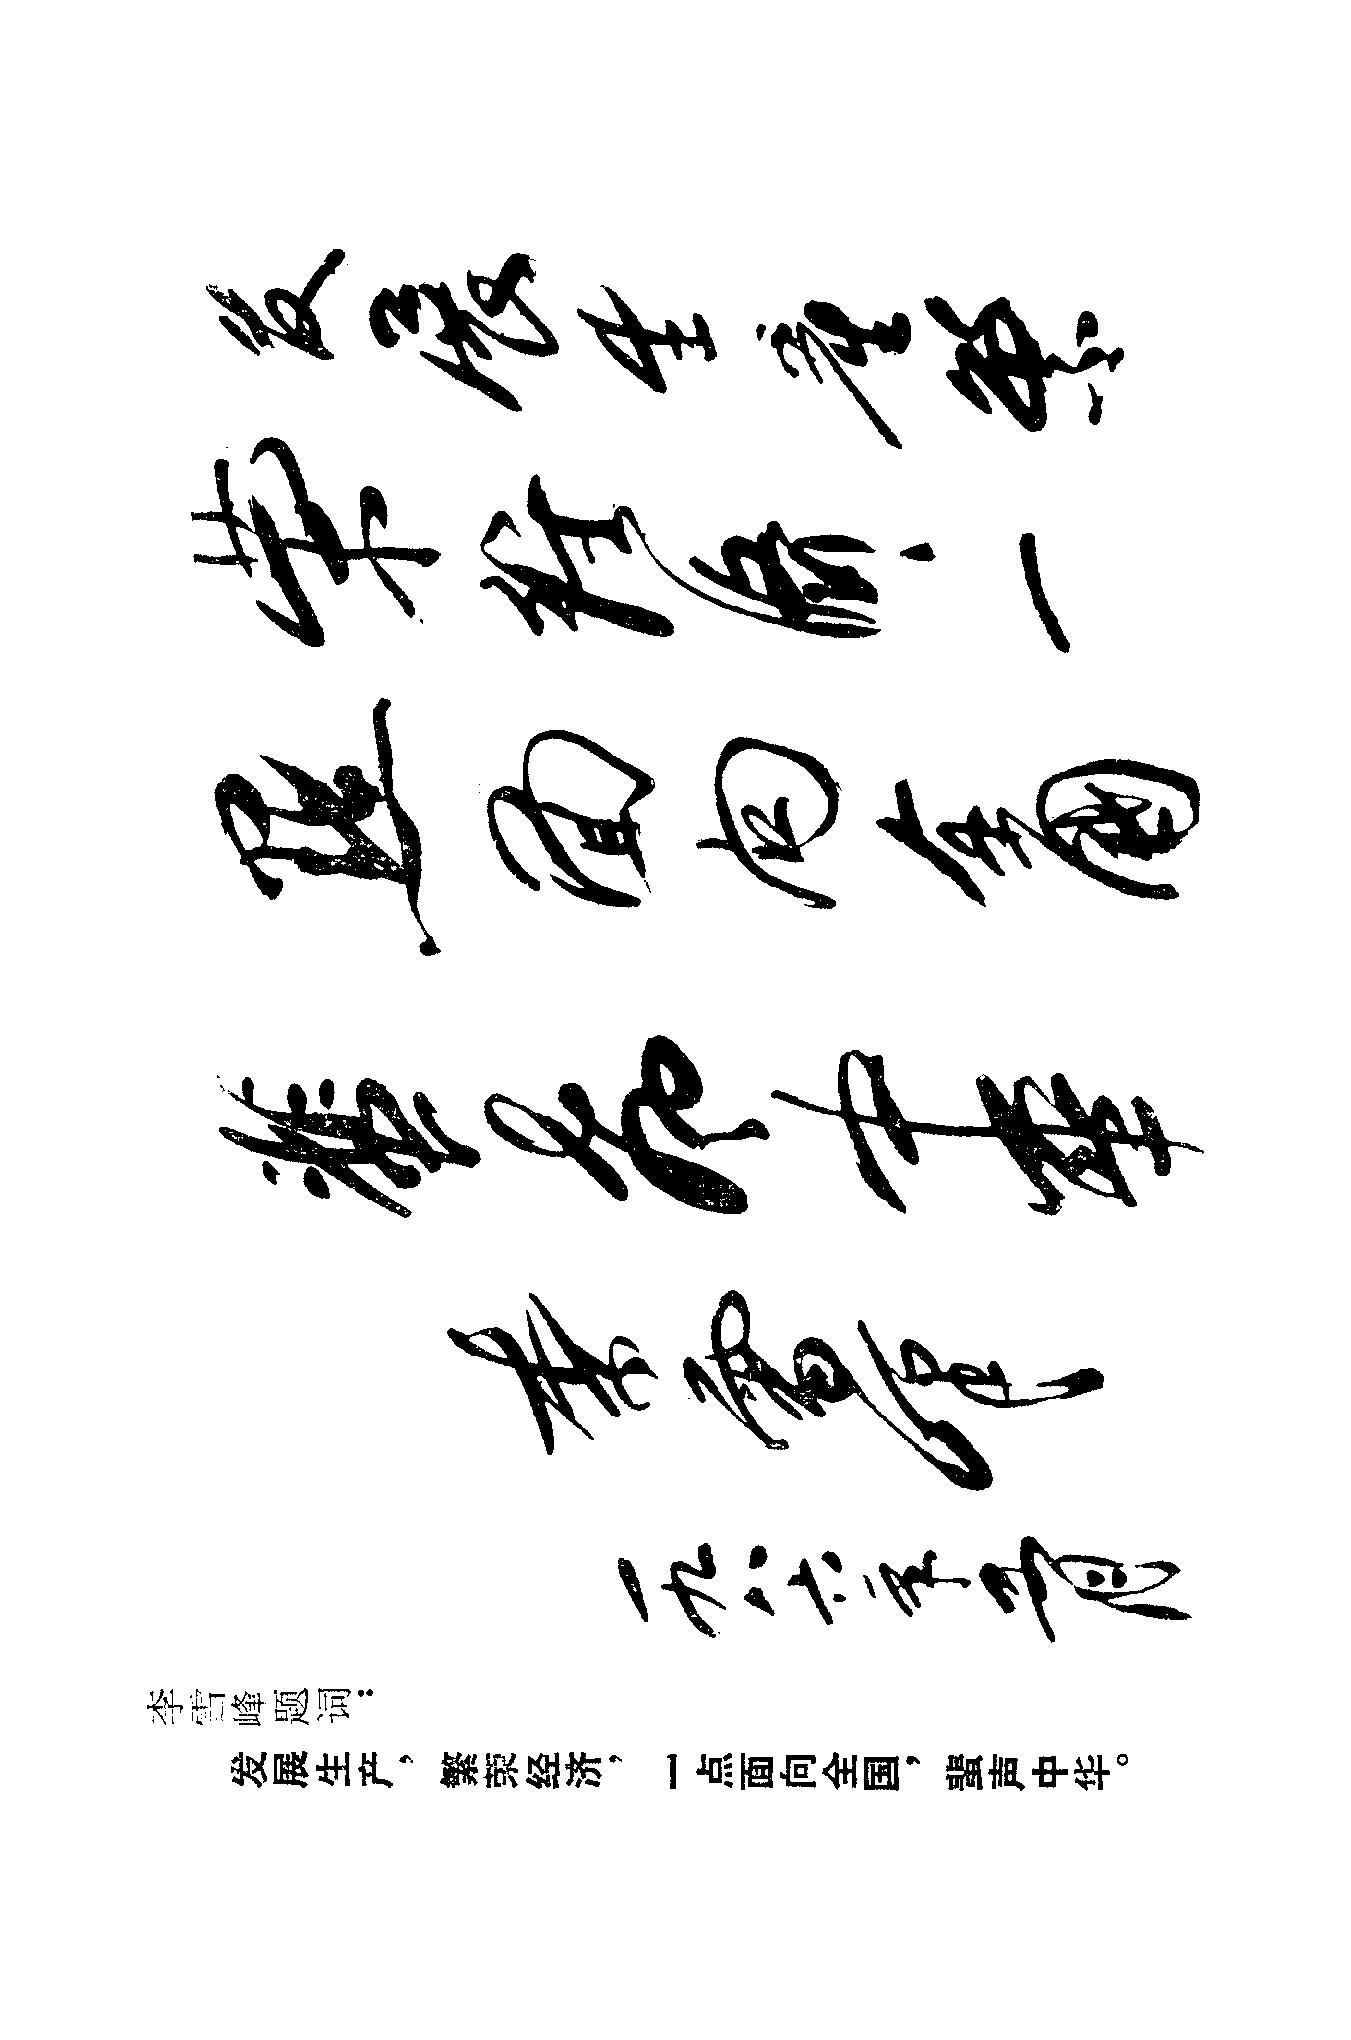 发展生产繁
荣经济，一
点面向全国
蜚声中华
李雪峰
一九八六年月
李雪峰题词：
发展生产，繁荣经济，一点面向全国，蜚声中华。